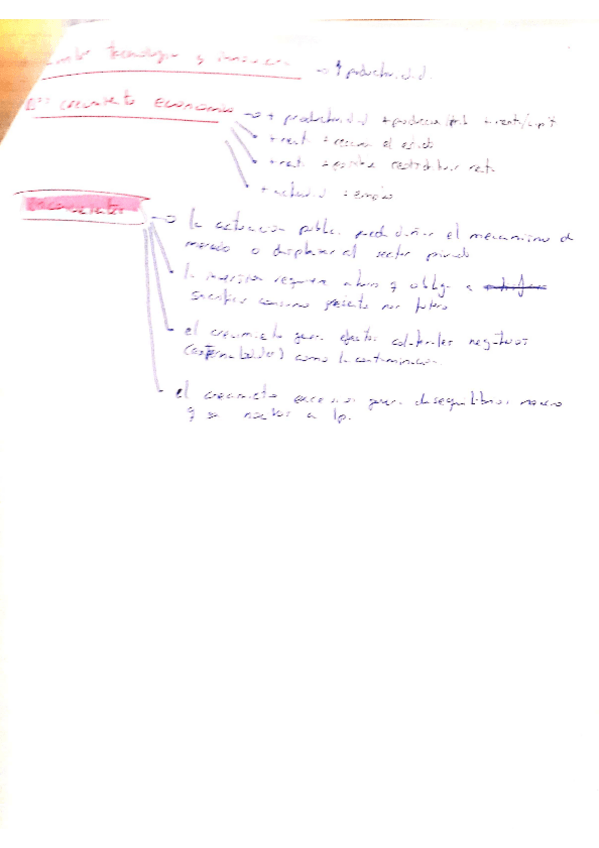 tecnología y → ↑ productividad.
crecimiento económico → + productividad + producción
+ renta + recursos el estado
+ renta + redistribuir renta
+ actividad + empleo
Inconvenientes → la actuación públic. puede dañar el mecanismo d
mercado o desplazar al sector privado
la inversión requiere ahorro y oblig. a
sacrificar consumo presente por futuro
el crecimiento gener. efectos colaterales negativos
(externalidades) como la contaminación.
el crecimiento excesivo gener. desequilibrios macro
y son nocivos a lp.